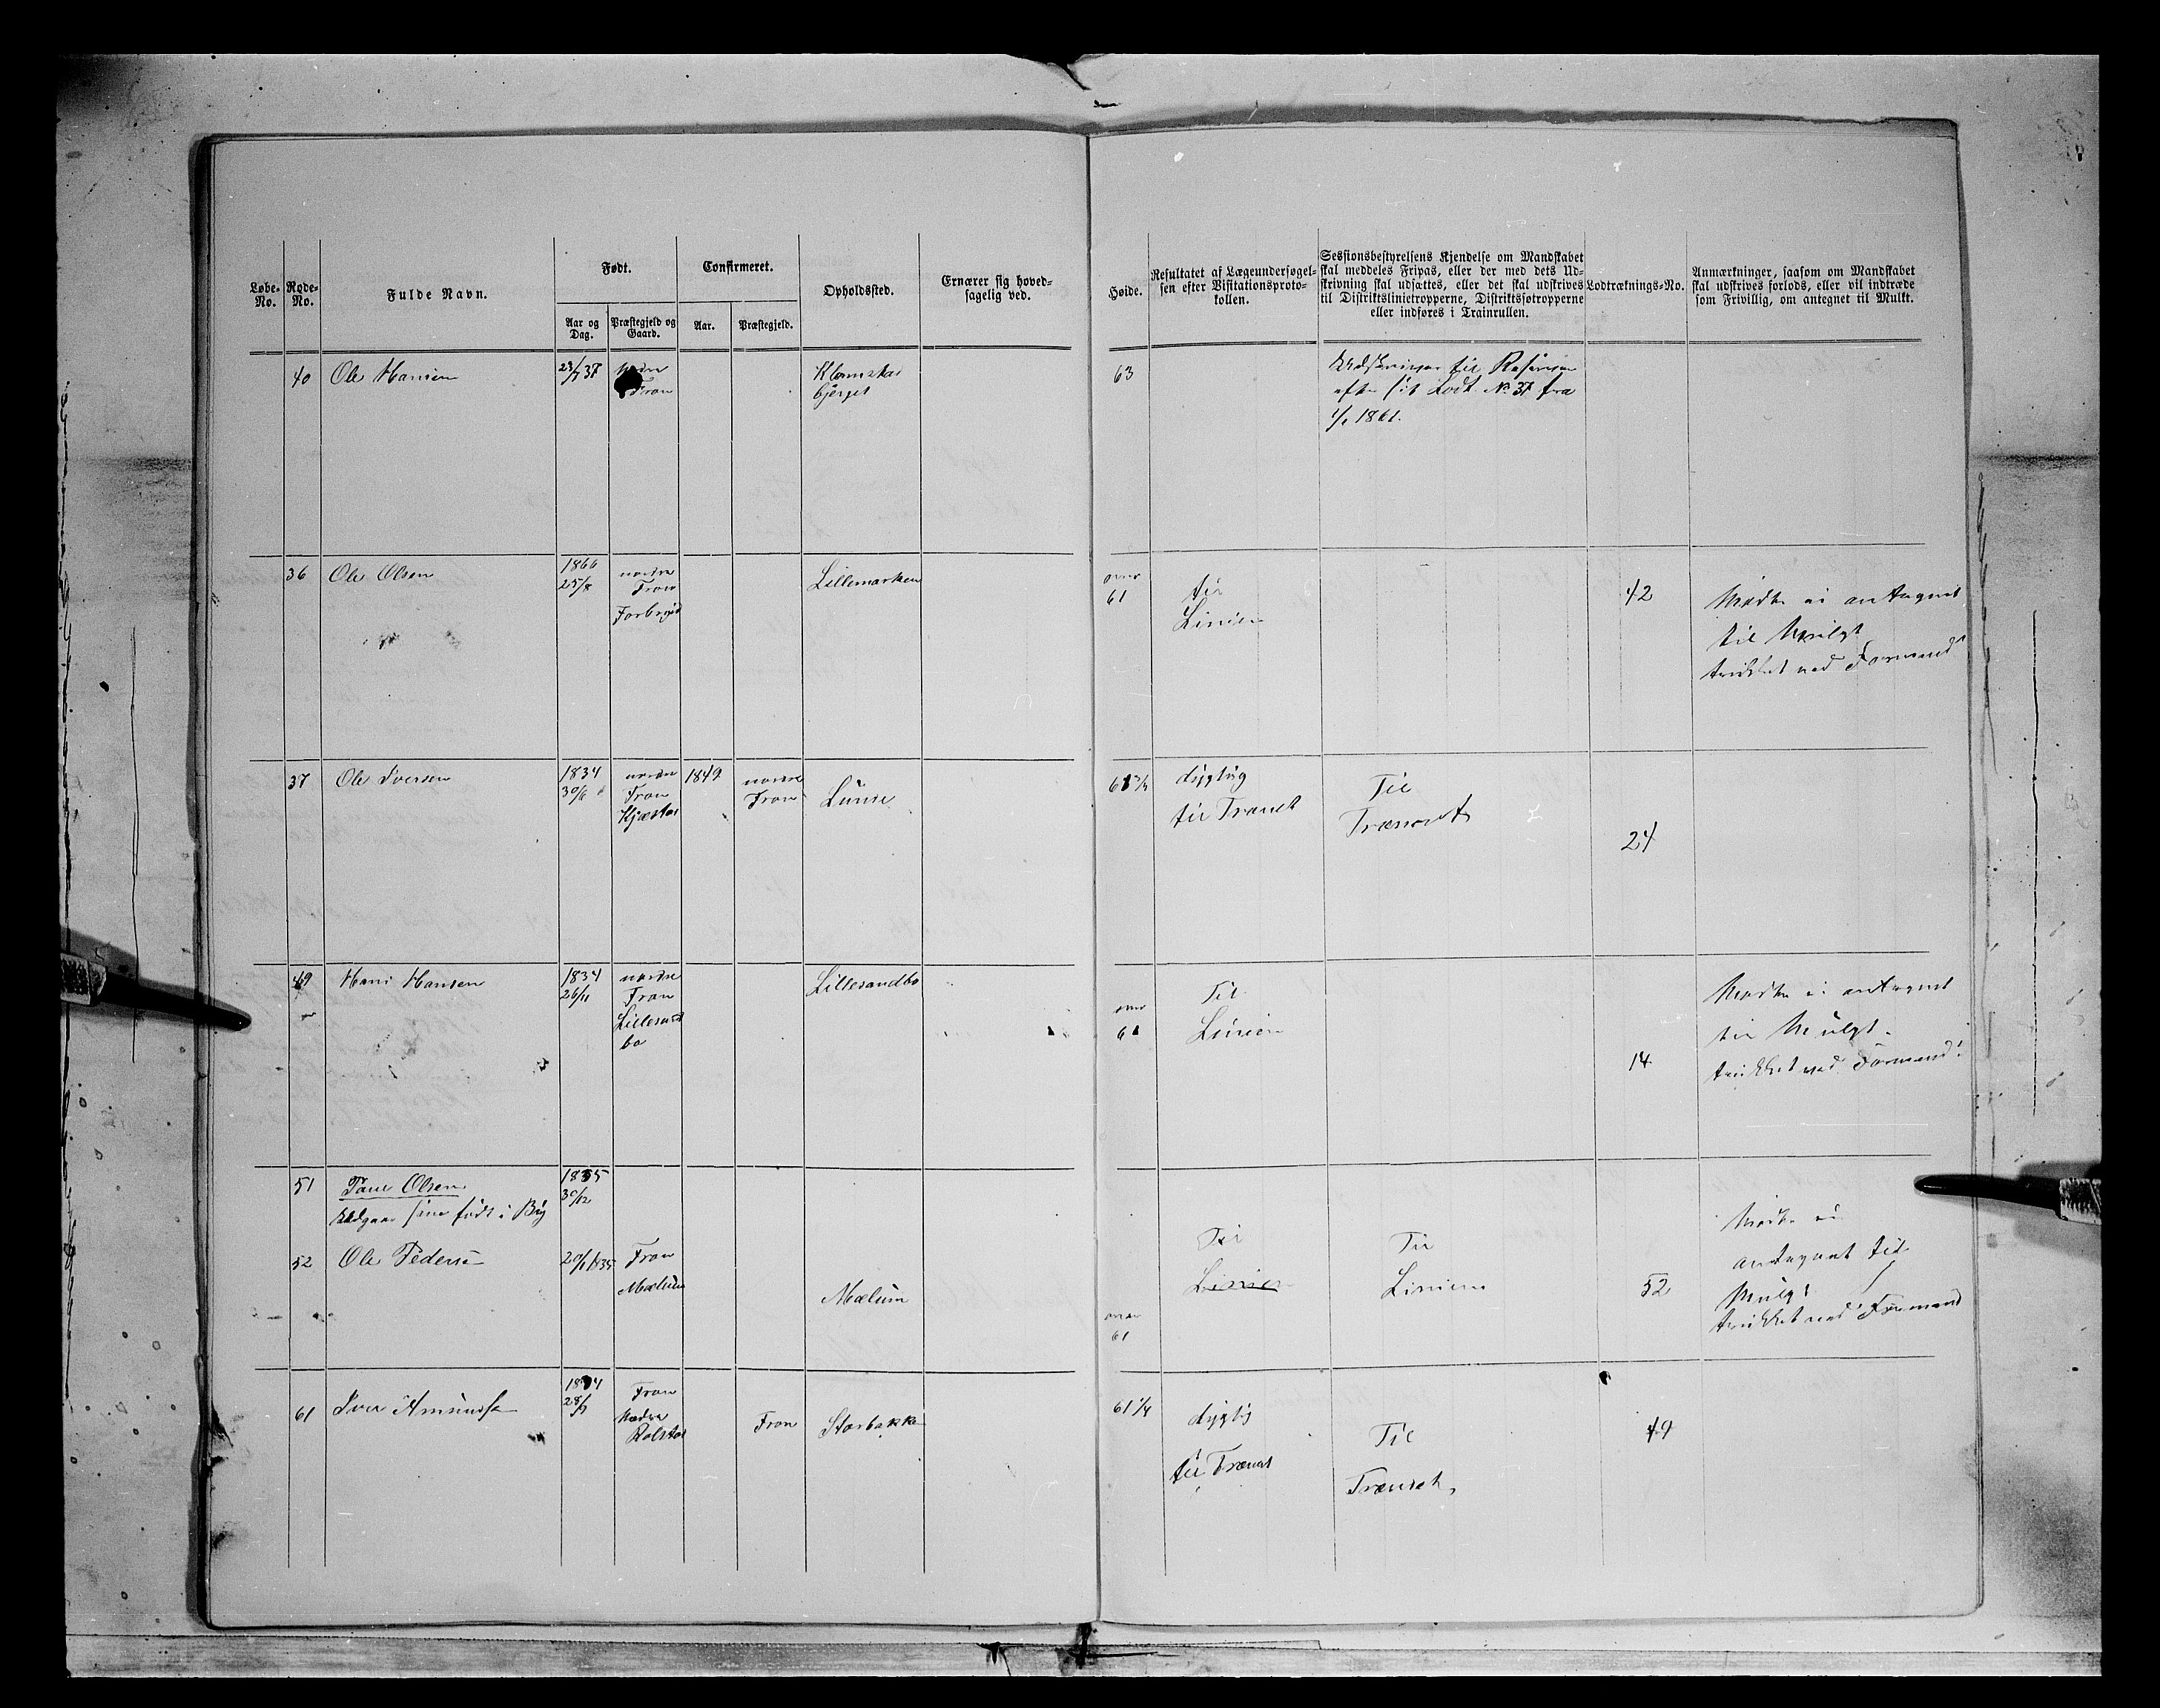 Løbe-No.
Rode-No.
Fulde Navn.
Født.
Aar og Dag.
Præstegjeld og Gaard.
Confirmeret.
Aar.
Præstegjeld.
Opholdssted.
Ernærer sig hovedsagelig ved.
Høide.
Resultatet af Lægeundersøgelsen efter Visitationsprotokollen.
Sessionsbestyrelsens Kjendelse om Mandskabet skal meddeles Fripas, eller der med dets Udskrivning skal udsættes, eller det skal udskrives til Distriktslinietropperne, Distriktsfotropperne eller indføres i Trainrullen.
Lodtræknings-No.
Anmærkninger, saasom om Mandskabet skal udskrives forlods, eller vil indtræde som Frivillig, om antegnet til Mulkt.
40 Ole Hansen 23/7 37
Fron
63
efter sit Lodt. No 37 fra
1/1 1861.
36 Ole Olsen 1866
25/8
nordre
Fron
Lillemarken
over
61
til
Linien
42
Mødte ei antegnet
til Mulgt
trukket ved Formand
37 Ole Iversen 1834
30/6
nordre
Fron
Kjæstad
1849
nordre
Fron
61 3/4
dygtig
til Trænet
Til
Trænet
24
49 Hans Hansen 1834
26/11
nordre
Fron
Lillesand
bo
Lillesandbo
over
61
Til
Linien
14
Mødte ei antegnet
til Mulgt.
trukket ved Formand
51 Olsen 1835
30/12
født i
52 Ole Pedersen 20/1 1835
Fron
Mælum
Mælum
over
61
Til
Linien
Til
Linien
52
Mødte ei
antegnet til
Mulgt
trukket ved Formand
61 Iver Amundsen 1834
Fron
Nordre
Rolstad
Fron
Storbakke
61 1/4
dygtig
til Trænet
Til
Trænet
49